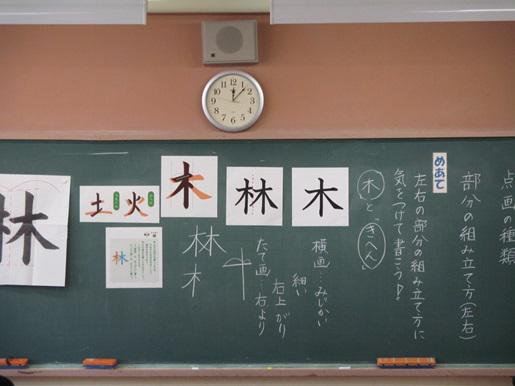 点画の種類
部分の組み立て方(左右)
めあて
左右の部分の組み立て方に
気をつけて書こう!
木と「きへん」
横画…みじかい
細い
右上がり
たて画…右より
木
林
木
林
木
火
土
林
林